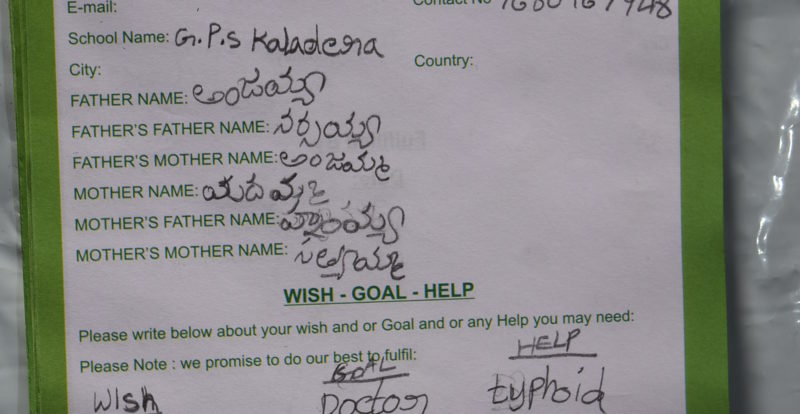 E-mail:
Contact No
School Name: G.P.S Kaladera
City:
Country:
FATHER NAME: అంజయ్యా
FATHER'S FATHER NAME: నర్సయ్యా
FATHER'S MOTHER NAME: అంజమ్మ
MOTHER NAME: యదమ్మ
MOTHER'S FATHER NAME:
MOTHER'S MOTHER NAME: సత్యమ్మ
WISH - GOAL - HELP
Please write below about your wish and or Goal and or any Help you may need:
Please Note : we promise to do our best to fulfil:
Wish GOAL HELP
Doctor typhoid